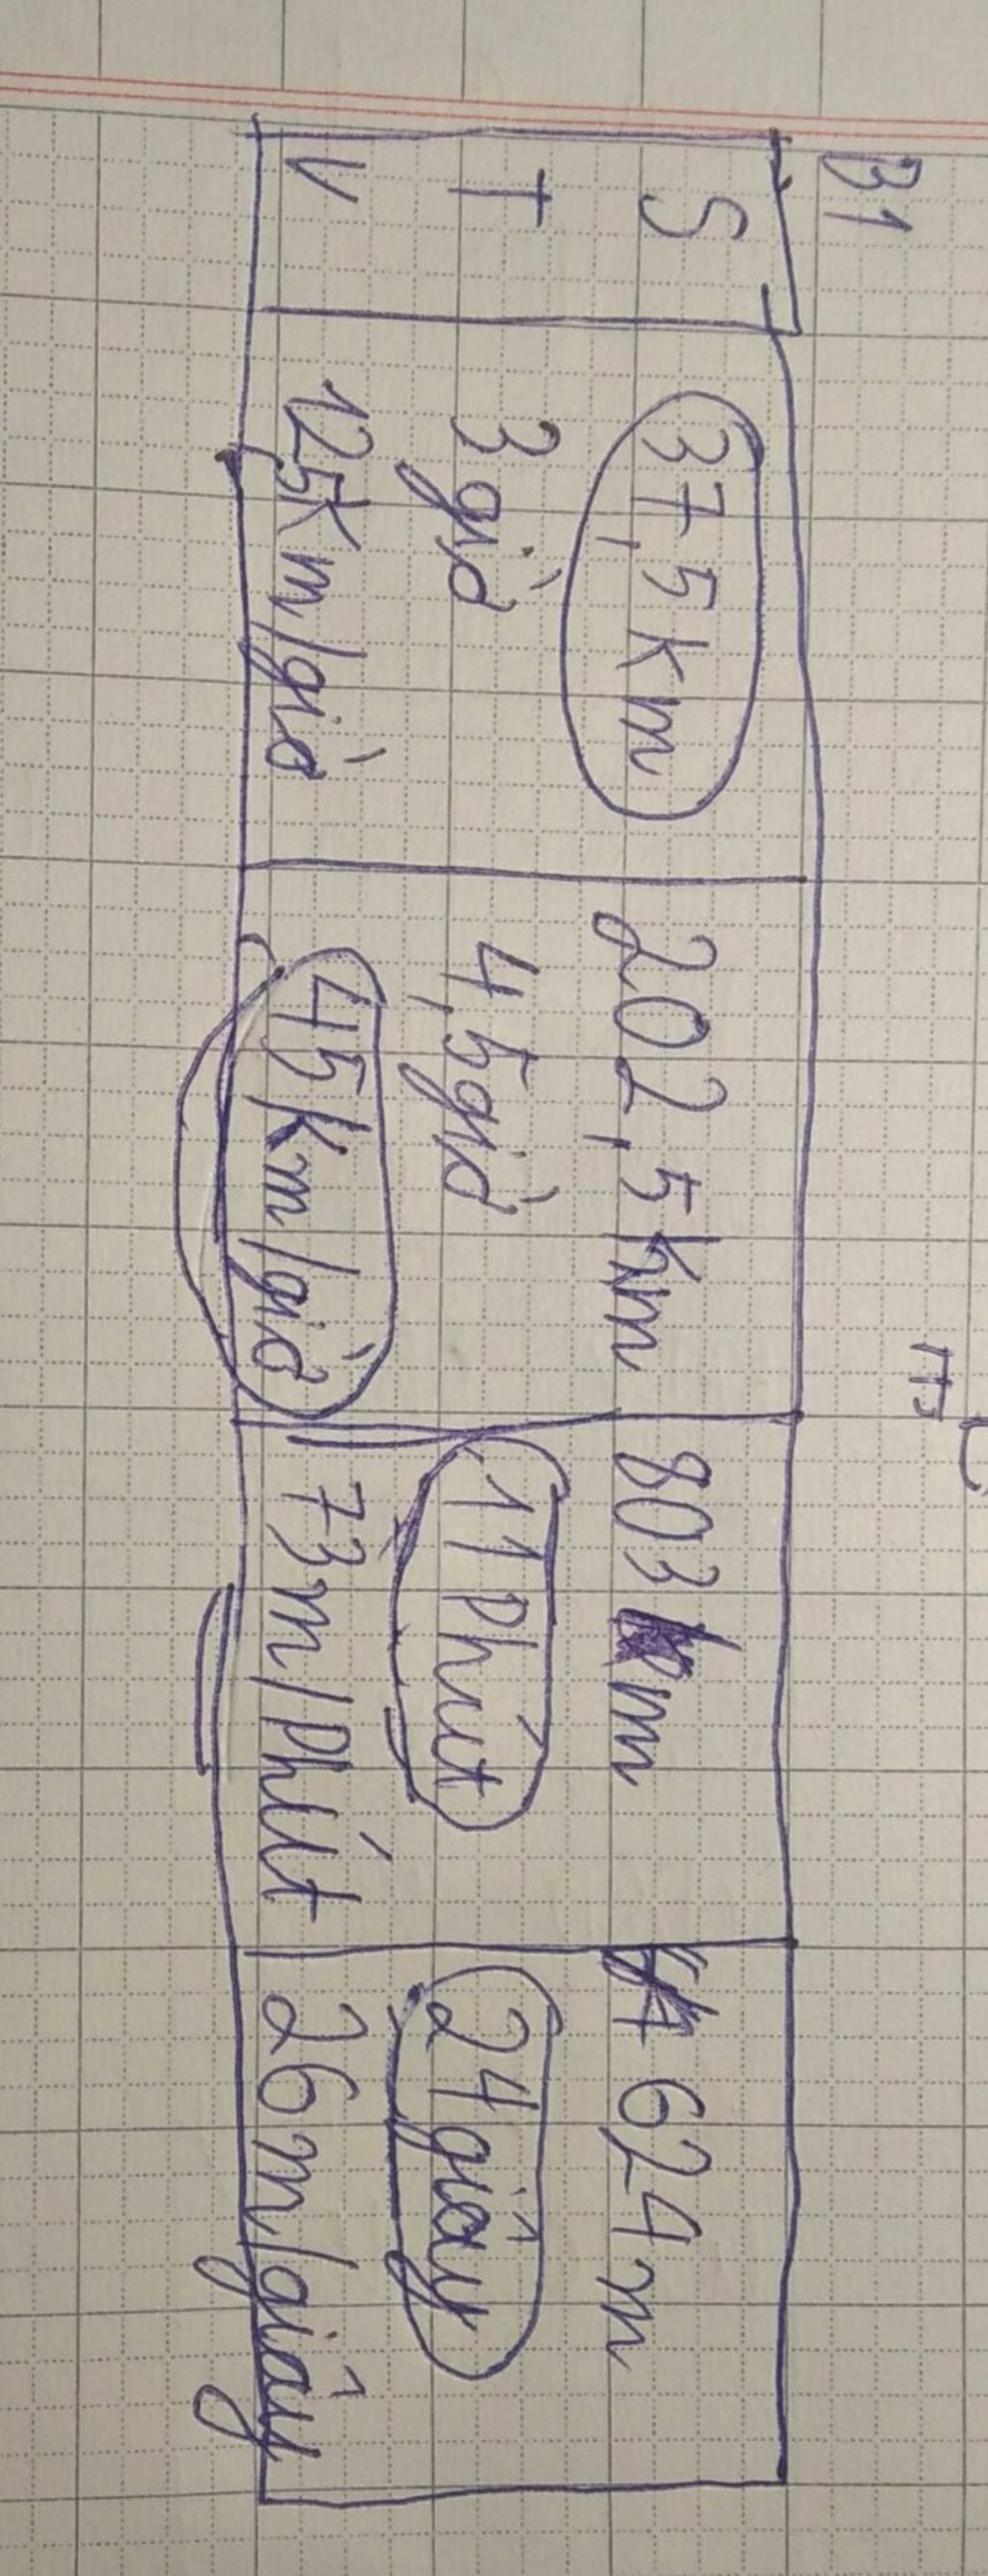 B1
S 37,5km 202,5km 803 m 624m
T 3 giờ 4,5giờ 11 Phút 24giây
V 125km/giờ 45km/giờ 73m/Phút 26m/giây